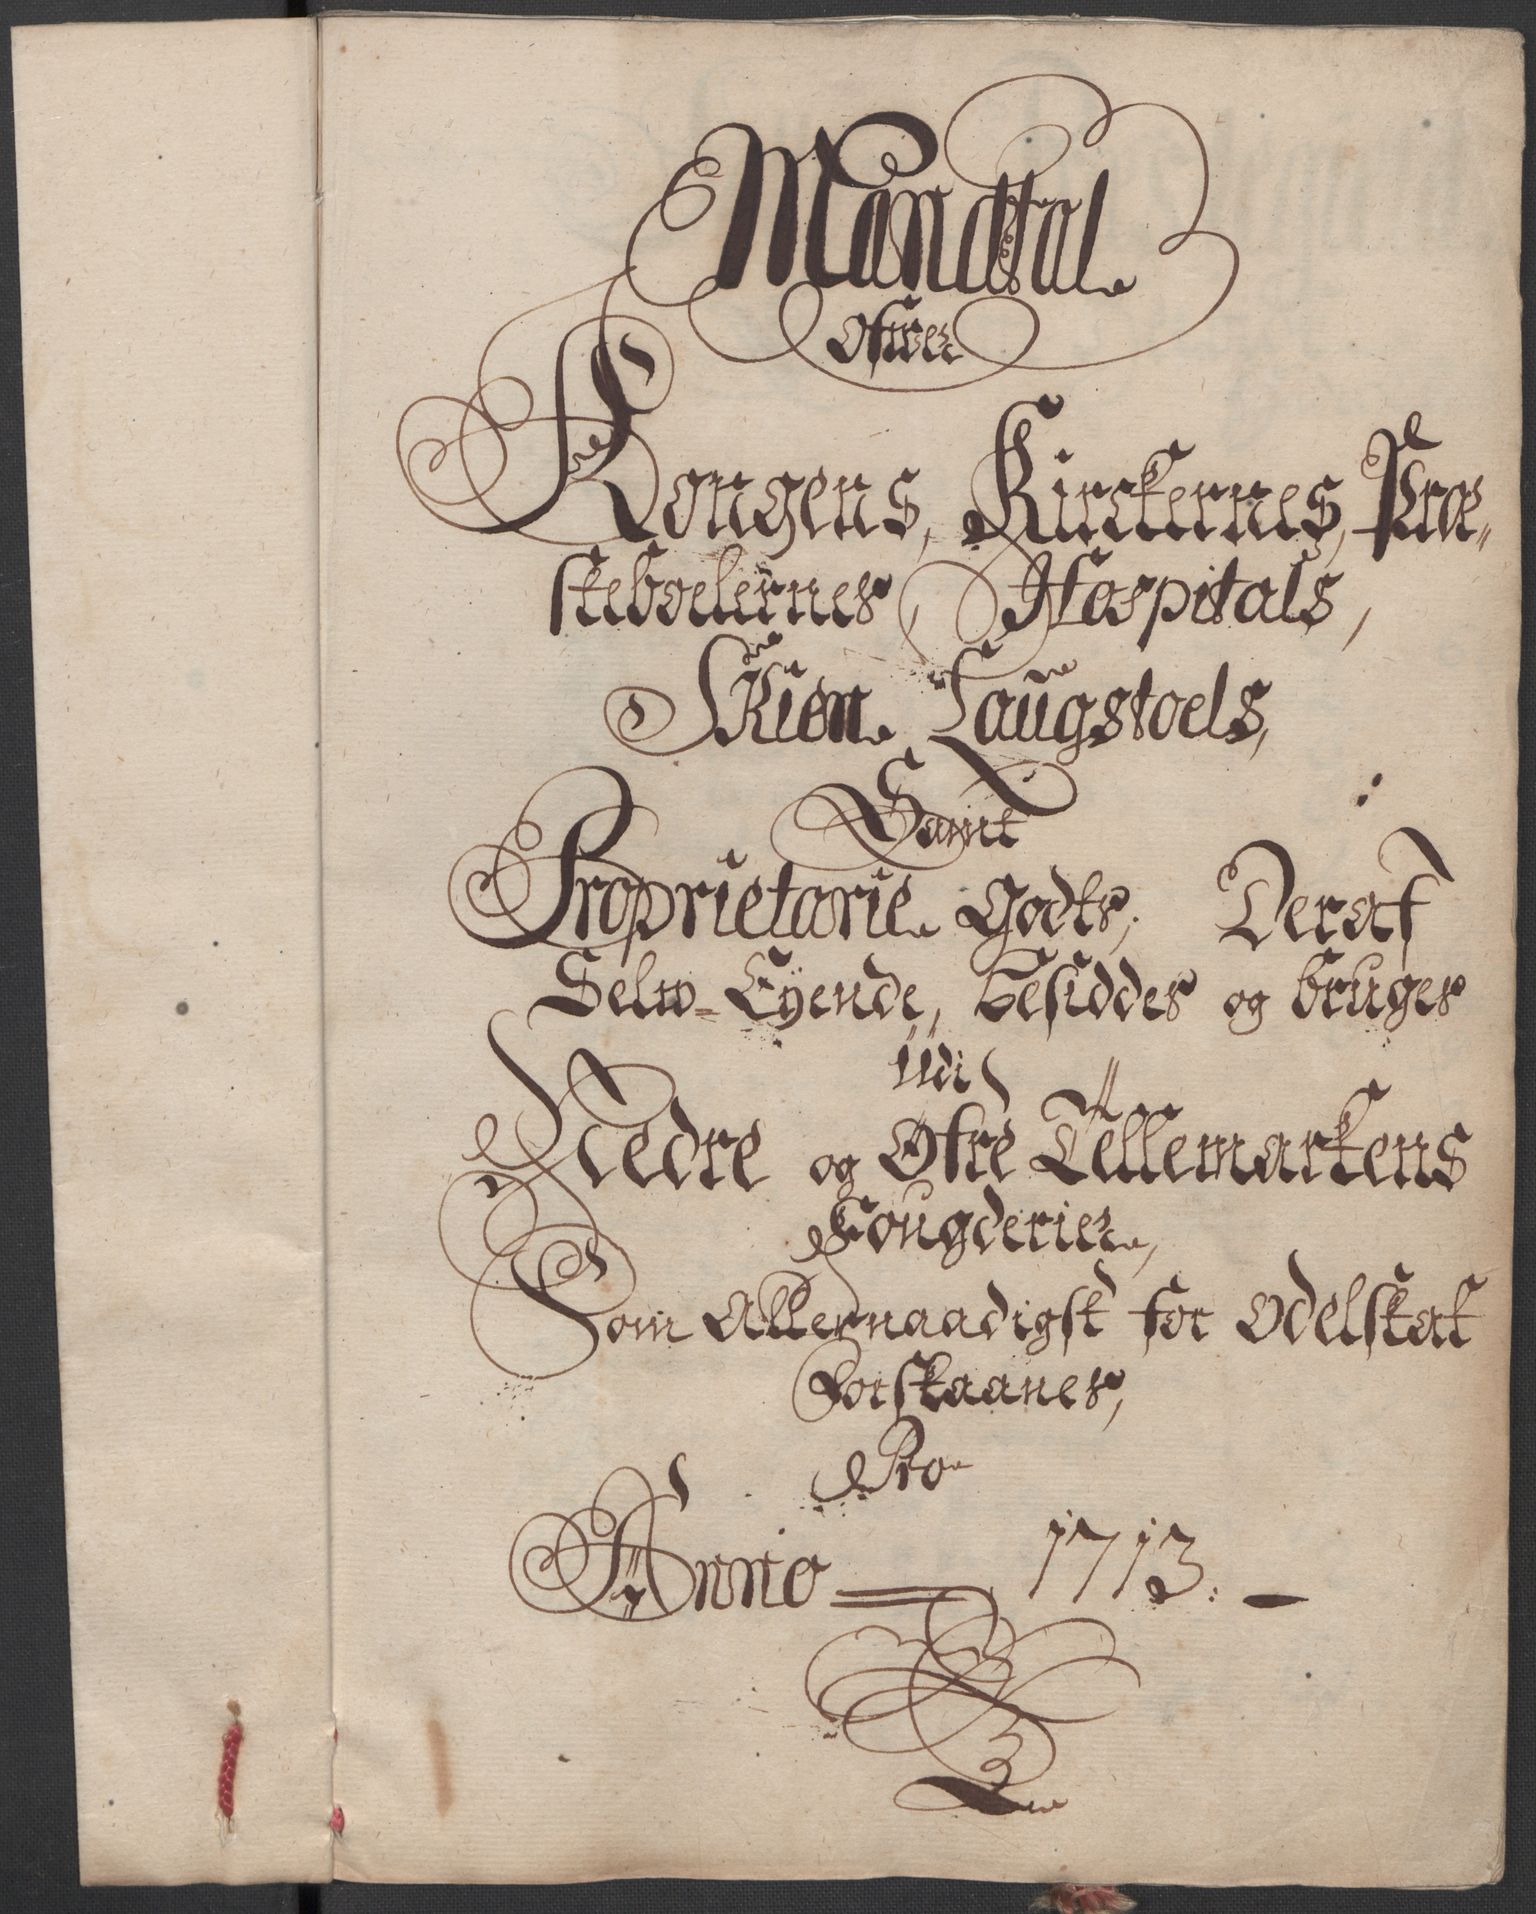 Mandtal
Ofver
Kongens, Kirckernes, Præ„
steboelernes, Hospitals,
Skien Laugstoels,
Samt
Proprietarie Godts, Deraf
Selw-Eÿende, besiddes og bruges
udi
Nedre og Øfre Tellemarkens
Fougderier,
Som Allernaadigst for Odelskat
Forskaanes,
Pro
Anno 1713.